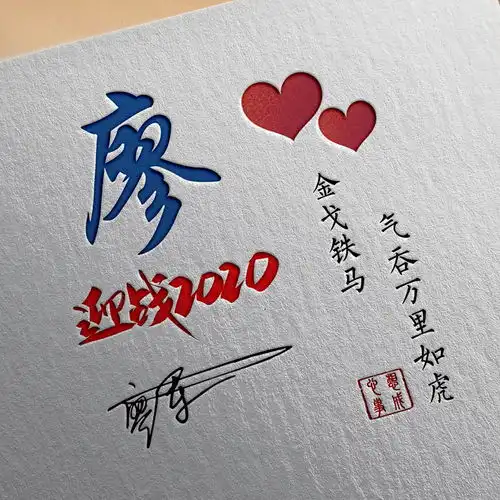 廖
迎战2020
金戈铁马
气吞万里如虎
心想事成